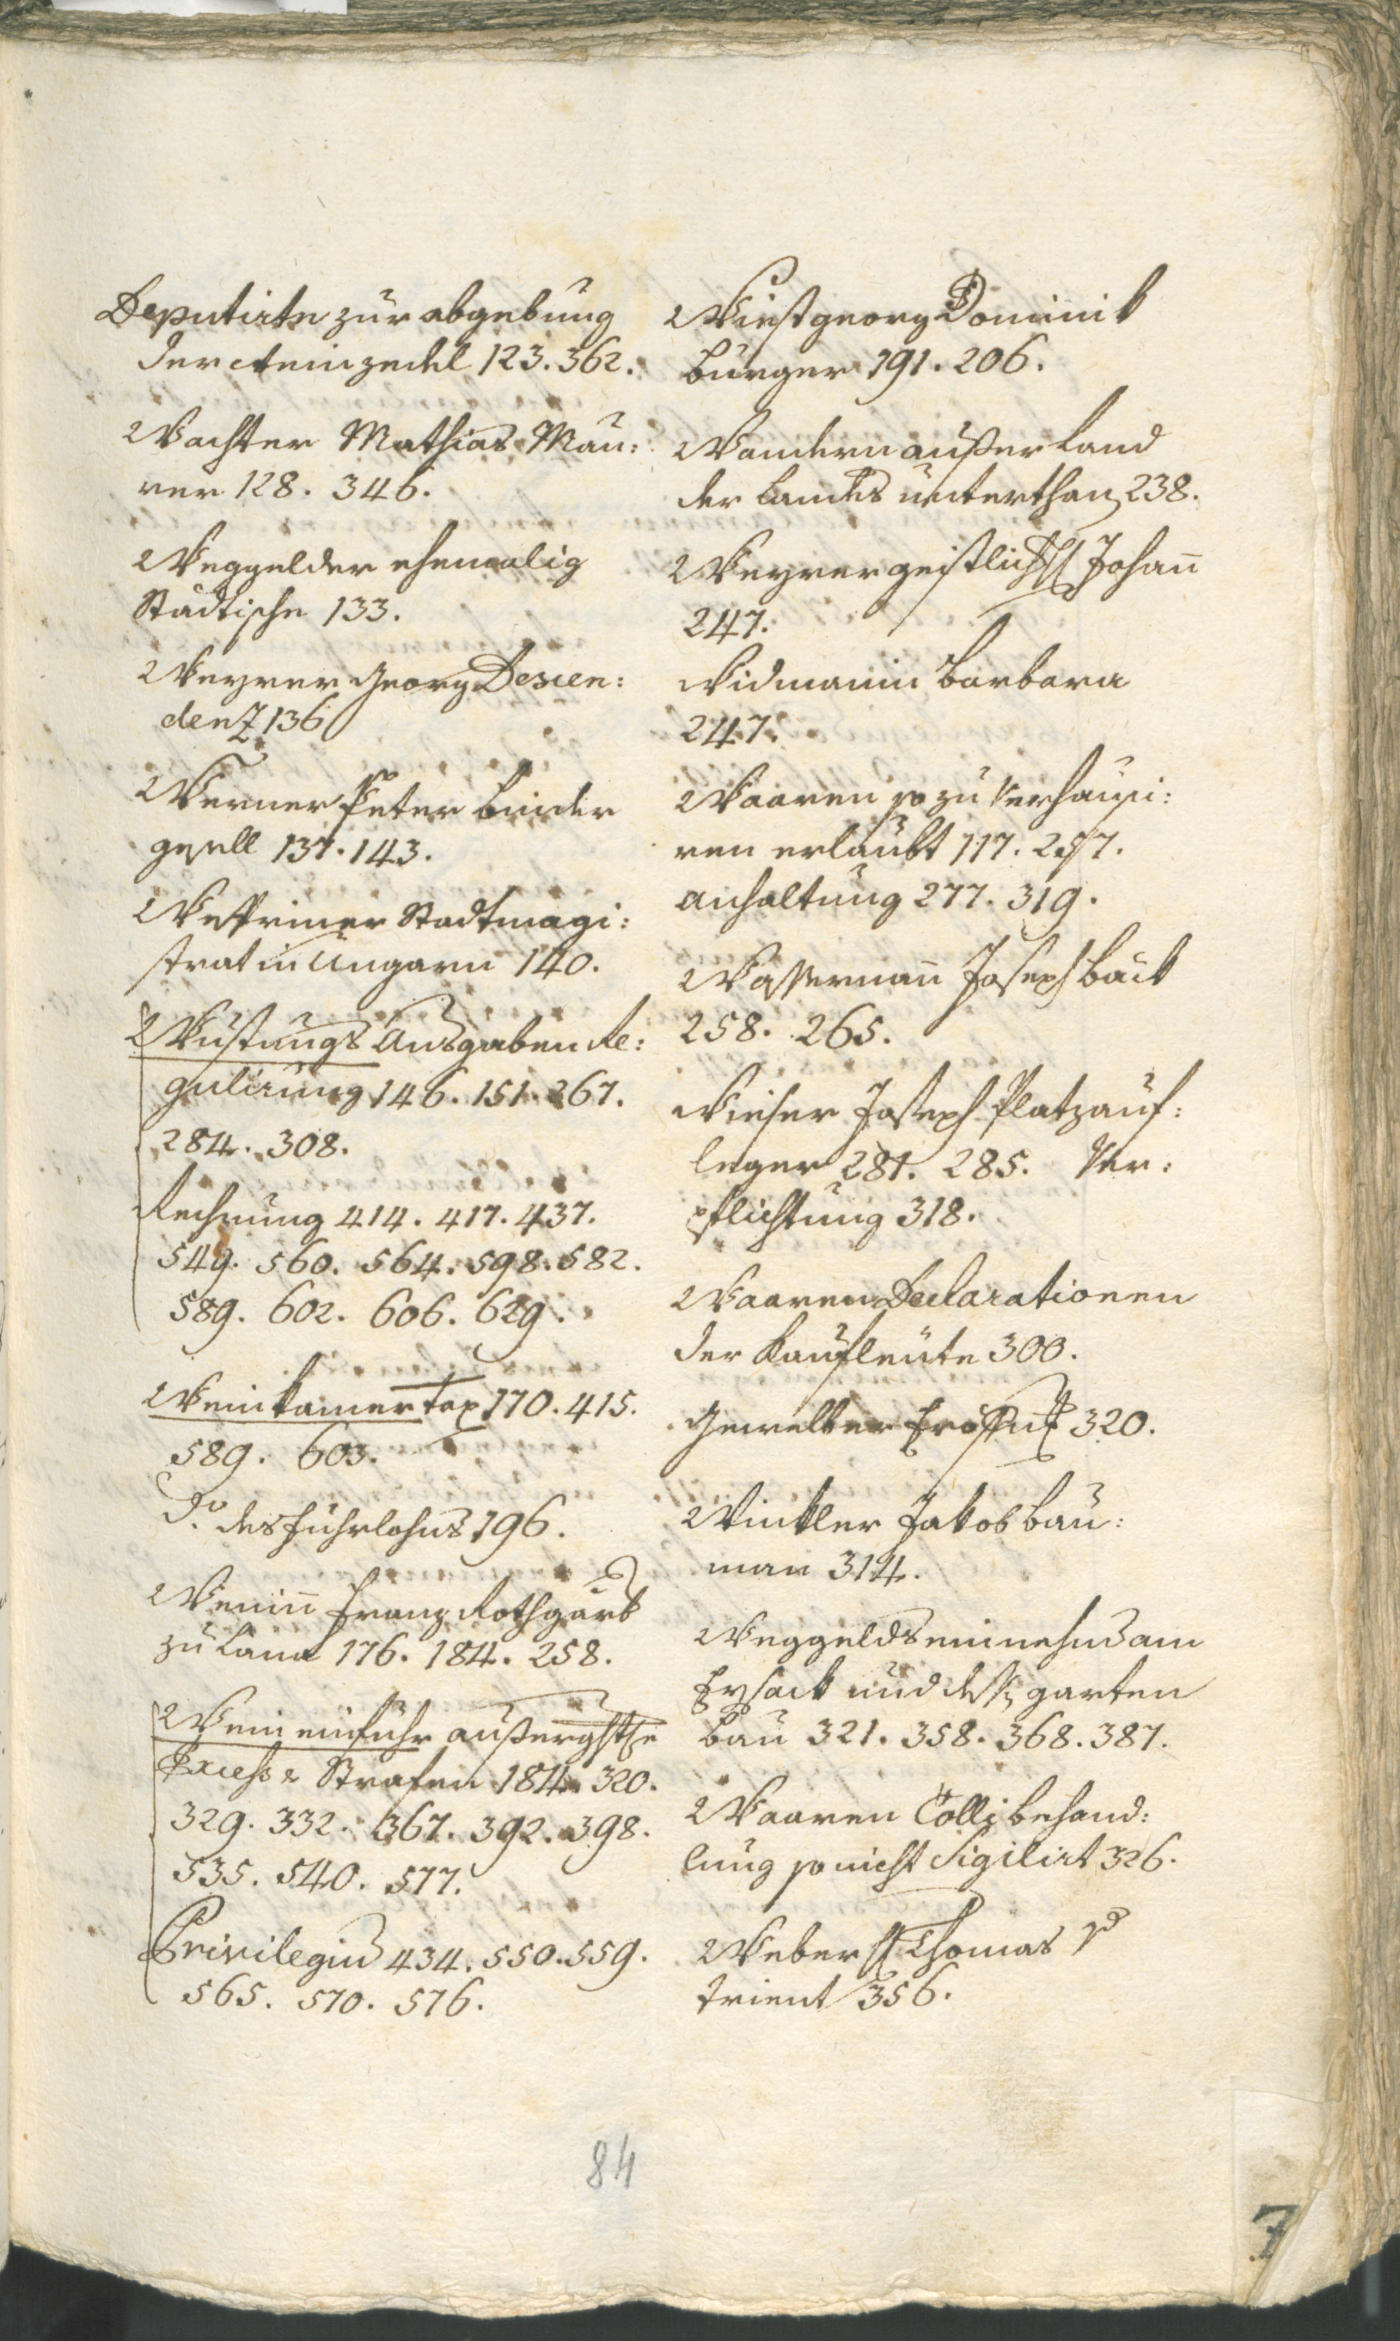 Deputirte zur abgebung
der Weinzedel 123. 362.
Wachter Mathias Mau:
rer 128. 346.
Weggelder ehemalig
Städtische 133.
Weyrer Georg Descen:
denz 136
Werner Peter binder
gesell 137. 143.
Wessriner Stadtmagi:
strat in Ungarn 140.
Wustungs Ausgaben Re:
gulirung 146. 151. 267.
284. 308.
Rechnung 414. 417. 437.
549. 560. 564. 598. 582.
589. 602. 606. 629.
Weinkamertax 170. 415.
589. 603.
do. des fuhrlohns 196.
Weninn Franz Rothgärb
zu Lana 176. 184. 258.
Wein einfuhr
Excesse Strafen 184. 320.
329. 332. 367. 392. 398.
535. 540. 577.
Privilegium 434. 550. 559.
565. 570. 576.
Wiest georg Dominik
bürger 191. 206.
Wandern außer Land
der Landes unterthan 238.
Weyrer geistlich H Johann
247.
Widmanin Barbara
247.
Waaren so zu Verhausi:
ren erlaubt 117. 257.
anhaltung 277. 319.
Wassermann Joseph bäck
258. 265.
Wieser Joseph Platzauf:
leger 281. 285. Ver:
pflichtung 318.
Waaren Declarationen
der Kaufleute 300.
Gewelber Eröffn 320.
Winkler Jakob bau:
man 314.
Weggelds einnehm am
Eysack und dess garten
bau 321. 358. 368. 387.
Waaren Colli behand:
lung so nicht Sigilirt 326.
Weber H Thomas
trient 356.
84
7